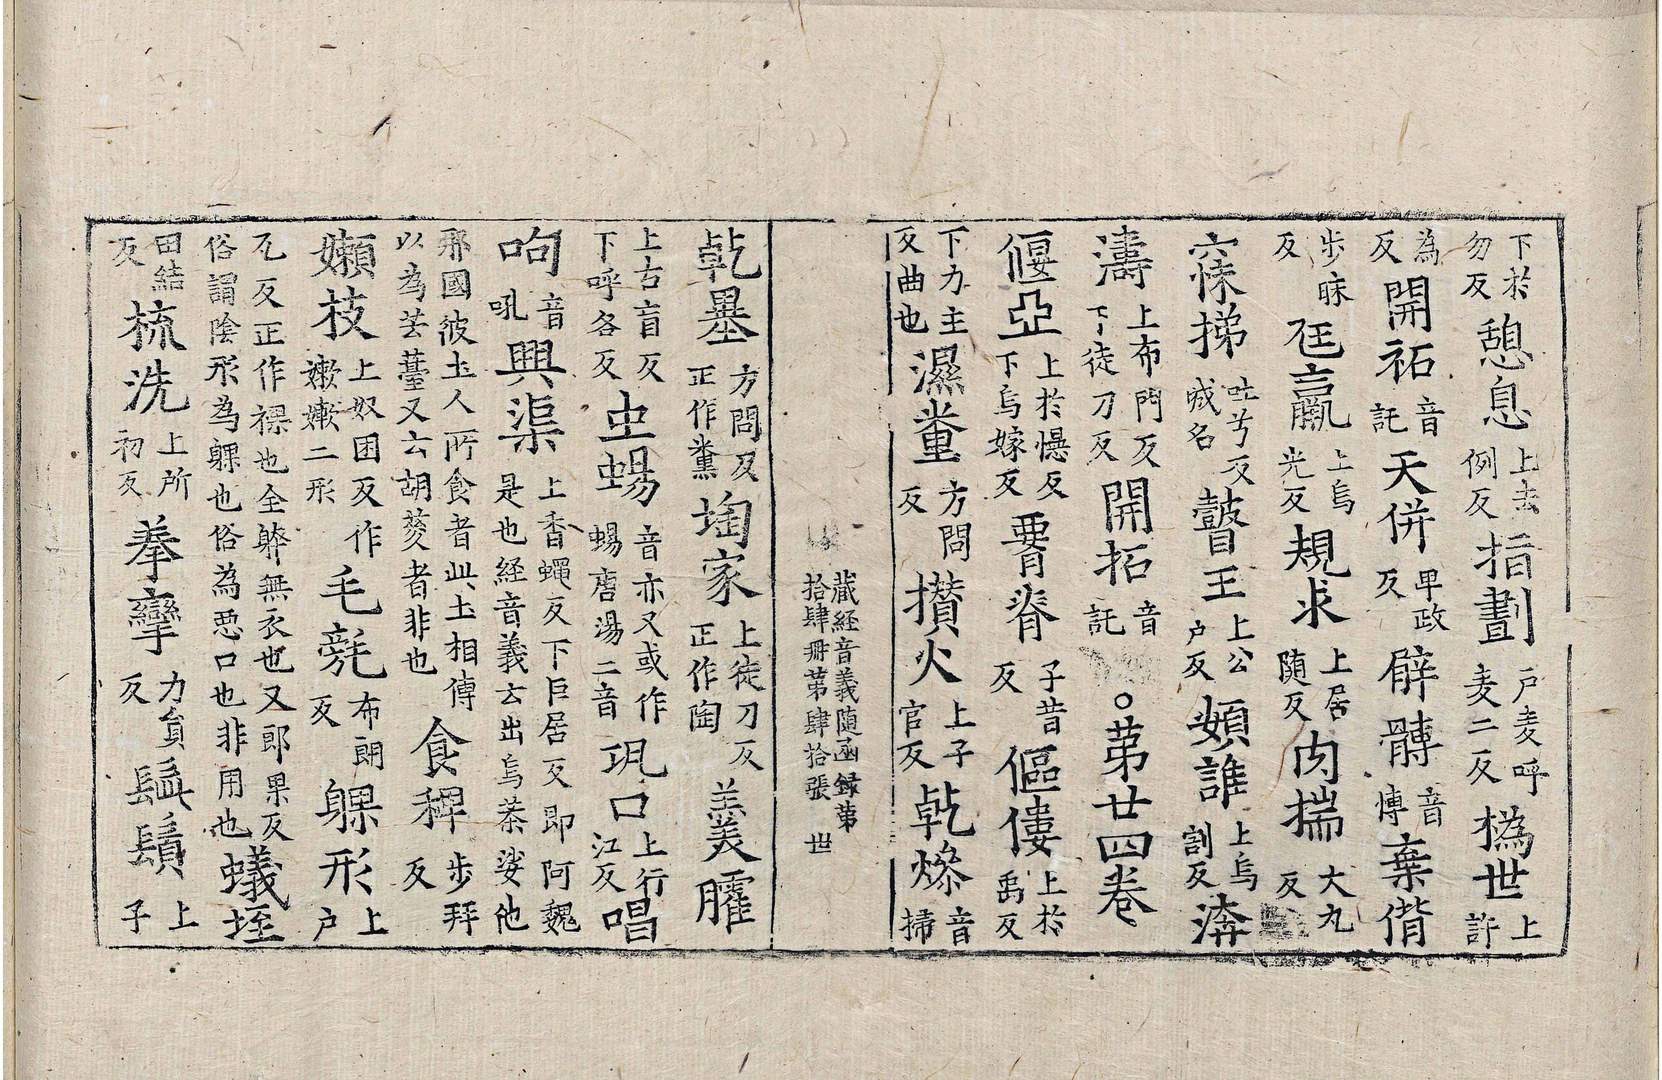 下於勿反憩息上去例反指劃戶麦呼麦二反撝世上許
為反開祏音託天併卑政反髀膞音愽棄偝
步昧反尫羸上烏光反規求上居随反肉揣大丸反
㝥挮吐兮反戓名瞽王上公戶反頞誰上烏割反渀
濤上布門反下徒刀反開拓音託○苐廿四卷
偃亞上於憶反下烏嫁反膂脊子昔反傴僂上於禹反
下力主反曲也濕糞方問反攅火上子官反乹燥音掃
藏経音義随函録苐拾肆冊苐肆拾張 世
乹墨方問反正作糞堈家上徒刀反正作陶羹臛
上古盲反下呼各反虫蝪音亦又或作蜴唐湯二音巩口上行江反唱
呴音吼興渠上香蠅反下巨居反即阿魏是也経音義云出烏荼娑他
那國彼土人所食者此土相傳以為芸薹又云胡荽者非也食稗步拜反
嬾枝上奴困反作嫩嫰二形毛毻布朗反躶形上戶
瓦反正作裸也全躰無衣也又郎果反俗謂陰形為躶也俗為惡口也非用也蟻垤
田結反梳洗上所初反拳攣力負反鬚鬢上子